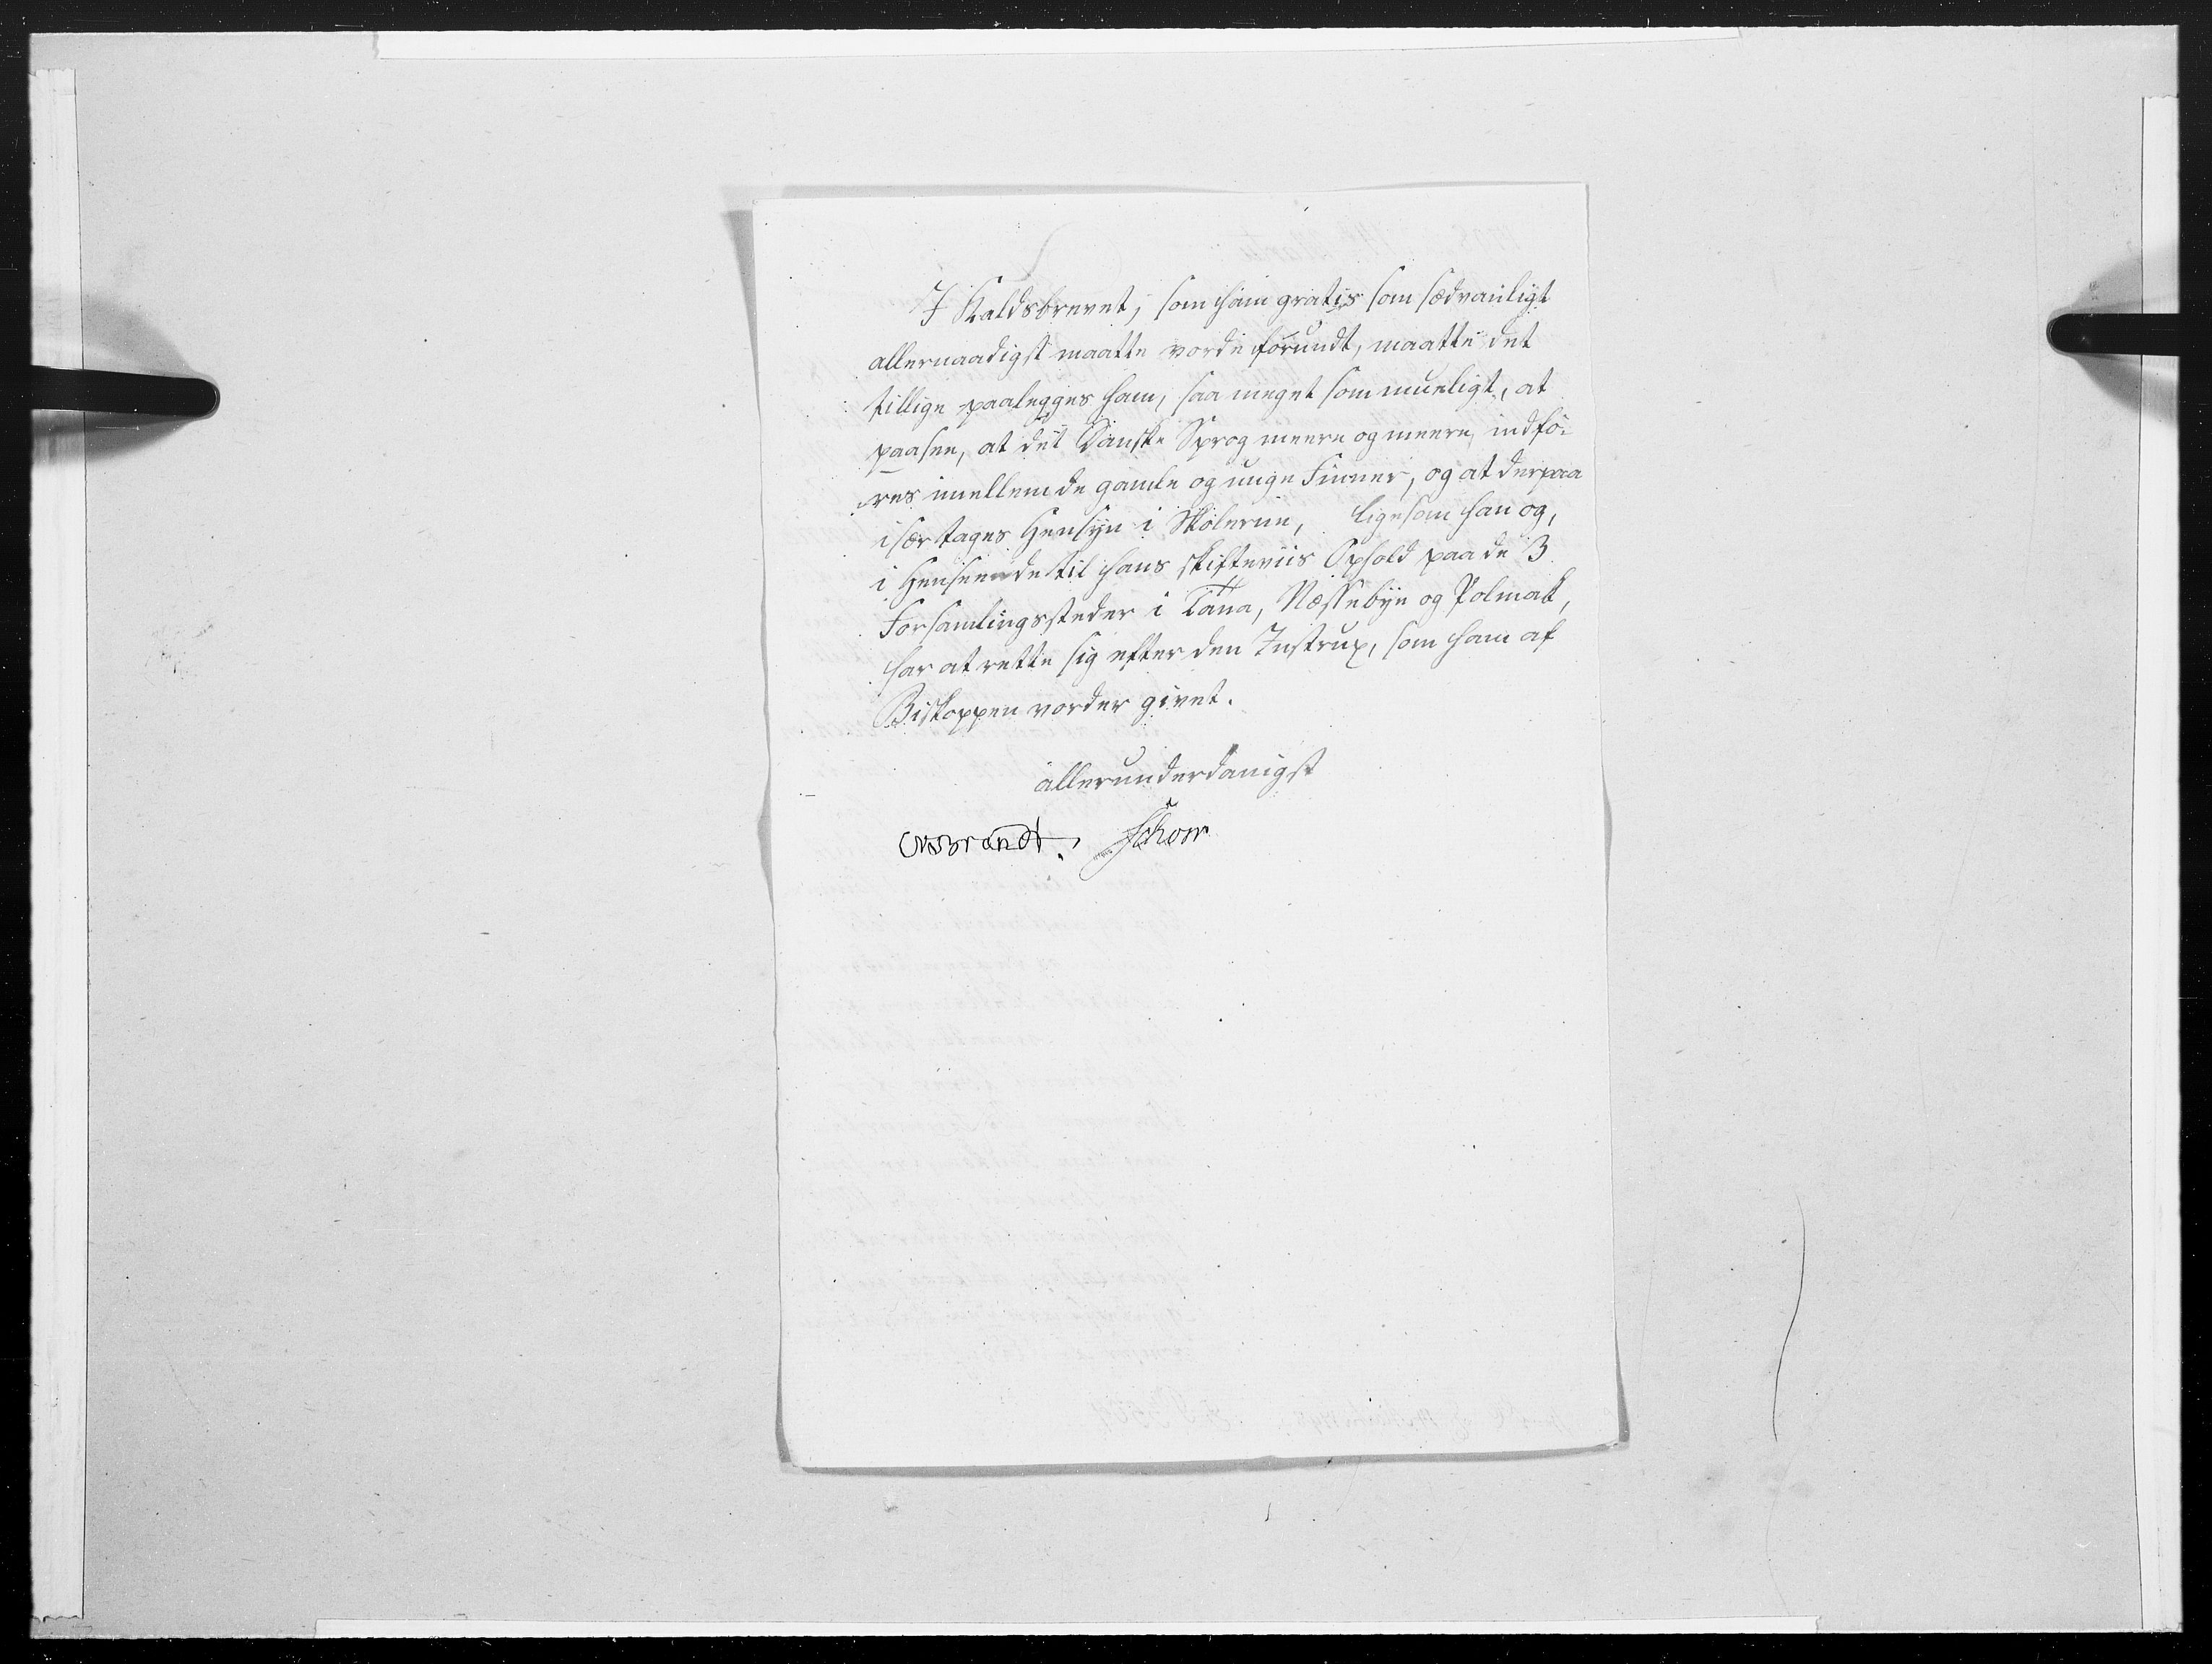 I Kaldsbrevet, som ham gratis som sædvanligt
allernaadigst maatte vorde forundt, maatte det
tillige paalegges ham, saa meget som mueligt, at
paasee, at det Danske Sprog meere og meere indfö-
res imellem de gamle og unge Finner, og at derpaa
især tages Hensyn i Skolerne, ligesom han og,
i Henseende til hans skifteviis Ophold paa de 3
Forsamlingssteder i Tana, Næssebye og Polmak,
har at rette sig efter den Instrux, som ham af
Biskoppen vorder givet.
allerunderdanigst
Schow